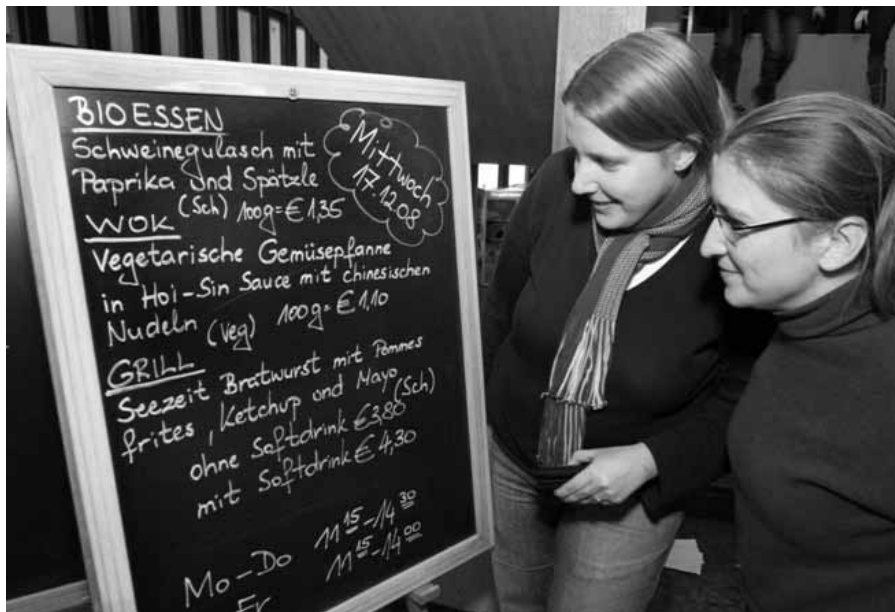 BIO ESSEN
Schweinegulasch mit
Paprika und Spätzle
(Sch) 100g = € 1,35
WOK
Vegetarische Gemüsepfanne
in Hoi-Sin Sauce mit chinesischen
Nudeln (Veg) 100g = € 1,10
GRILL
Seezeit Bratwurst mit Pommes
frites, Ketchup und Mayo (Sch)
ohne Softdrink € 3,80
mit Softdrink € 4,30
Mo-Do 11 15 - 14 30
Fr 11 15 - 14 00
Mittwoch
17.12.08